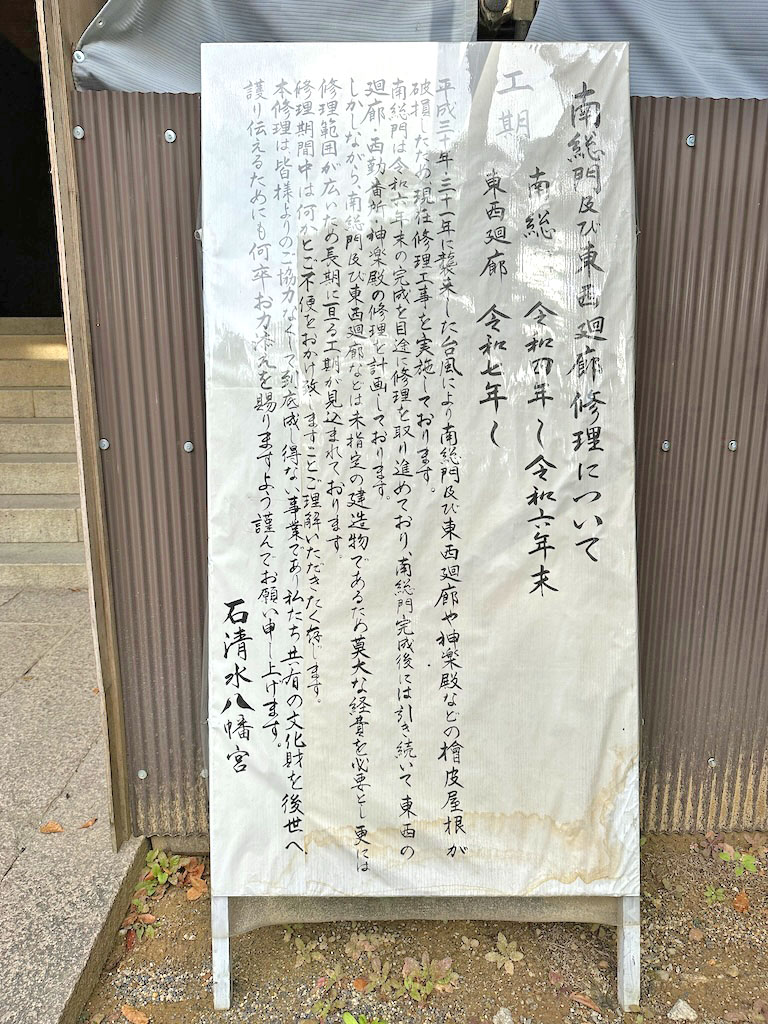 南総門及び東西廻廊修理について
工期
南総 令和四年〜令和六年末
東西廻廊 令和七年〜
平成三十年・三十一年に襲来した台風により南総門及び東西廻廊や神楽殿などの檜皮屋根が
破損したため、現在修理工事を実施しております。
南総門は令和六年末の完成を目途に修理を取り進めており、南総門完成後には引き続いて東西の
廻廊・西勤番所・神楽殿の修理を計画しております。
しかしながら、南総門及び東西廻廊などは未指定の建造物であるため莫大な経費を必要とし更には
修理範囲が広いため長期に亘る工期が見込まれております。
修理期間中は何かとご不便をおかけ致しますことご理解いただきたく存じます。
本修理は、皆様よりのご協力なくして到底成し得ない事業であり私たち共有の文化財を後世へ
護り伝えるためにも何卒お力添えを賜りますよう謹んでお願い申し上げます。
石清水八幡宮